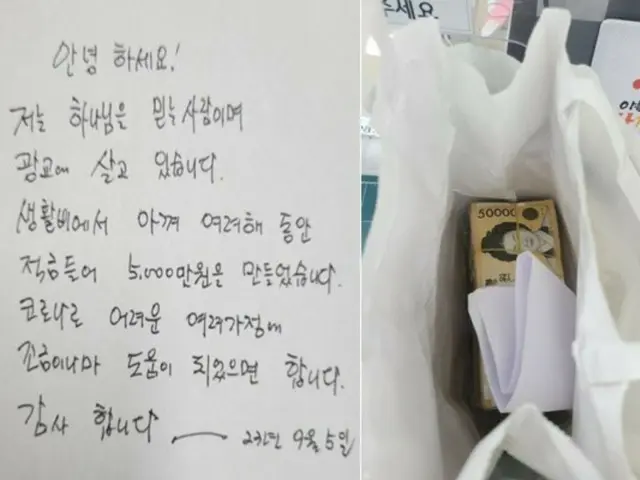 안녕 하세요!
저는 하나님은 믿는 사람이며
광교에 살고 있습니다.
생활비에서 아껴 여려해 동안
적금들어 5,000만원은 만들었습니다.
코로나로 어려운 여려가정에
조금이나마 도움이 되었으면 합니다.
감사 합니다 — 21년 9월 5일
주세요
50000